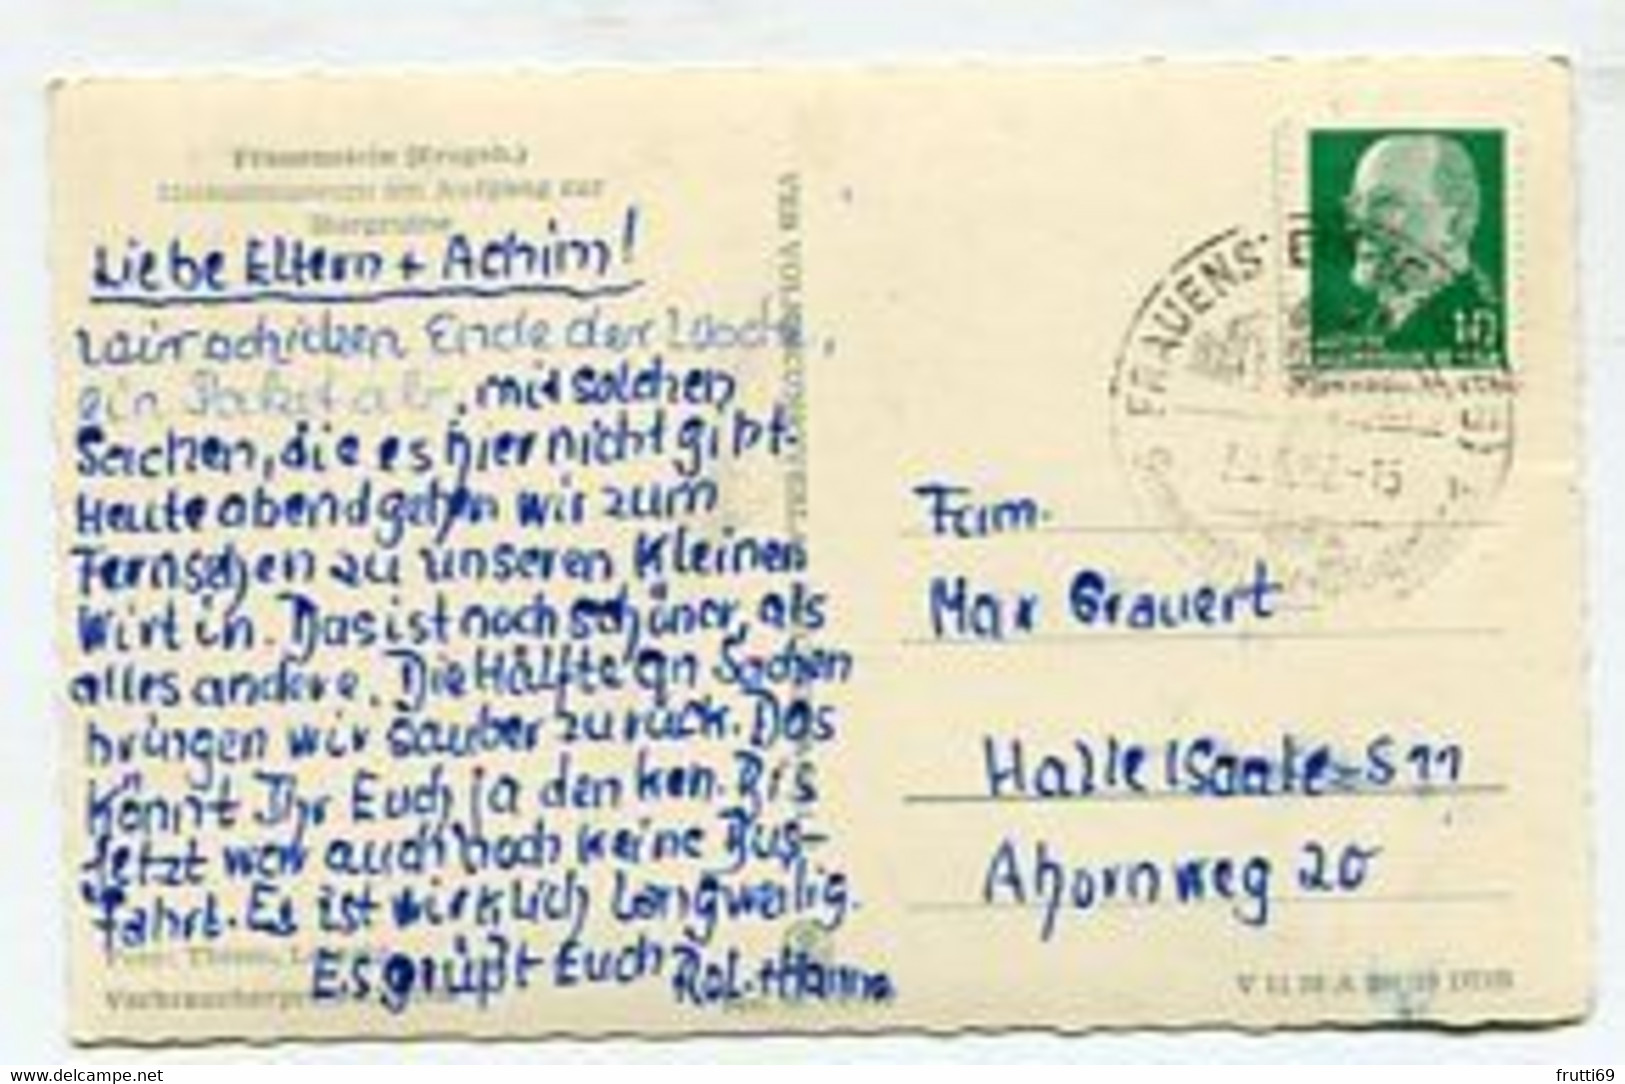 Frauenstein (Erzgeb.)
Heimatmuseum am Aufgang zur
Burgruine
Liebe Eltern + Achim!
Wir schicken Ende der Woche,
ein Paket ab, mit solchen
Sachen, die es hier nicht gibt.
Heute abend gehen wir zum
Fernsehen zu unseren kleinen
Wirtin. Das ist noch schöner, als
alles andere. Die Hälfte an Sachen
bringen wir sauber zurück. Das
könnt Ihr Euch ja denken. Bis
Jetzt war auch noch keine Bus-
fahrt. Es ist wirklich langweilig.
Es grüßt Euch Rol. + Hanna
Foto:
Verbraucherpreis
VEB
FRAUENSTEIN
10
Fam.
Max Grauert
Halle/Saale-S 11
Ahornweg 20
V 11 28 A DDR
delcampe.net
frutti69